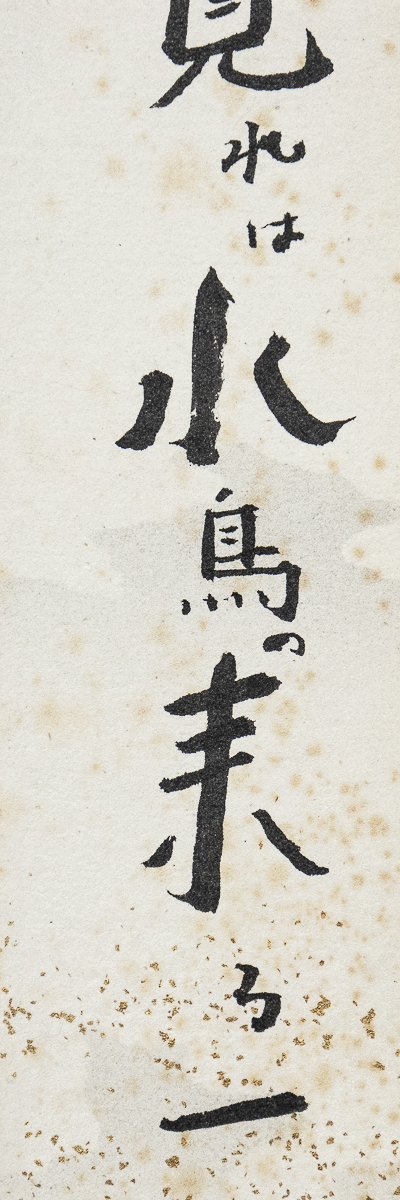 見れは水鳥の来る一